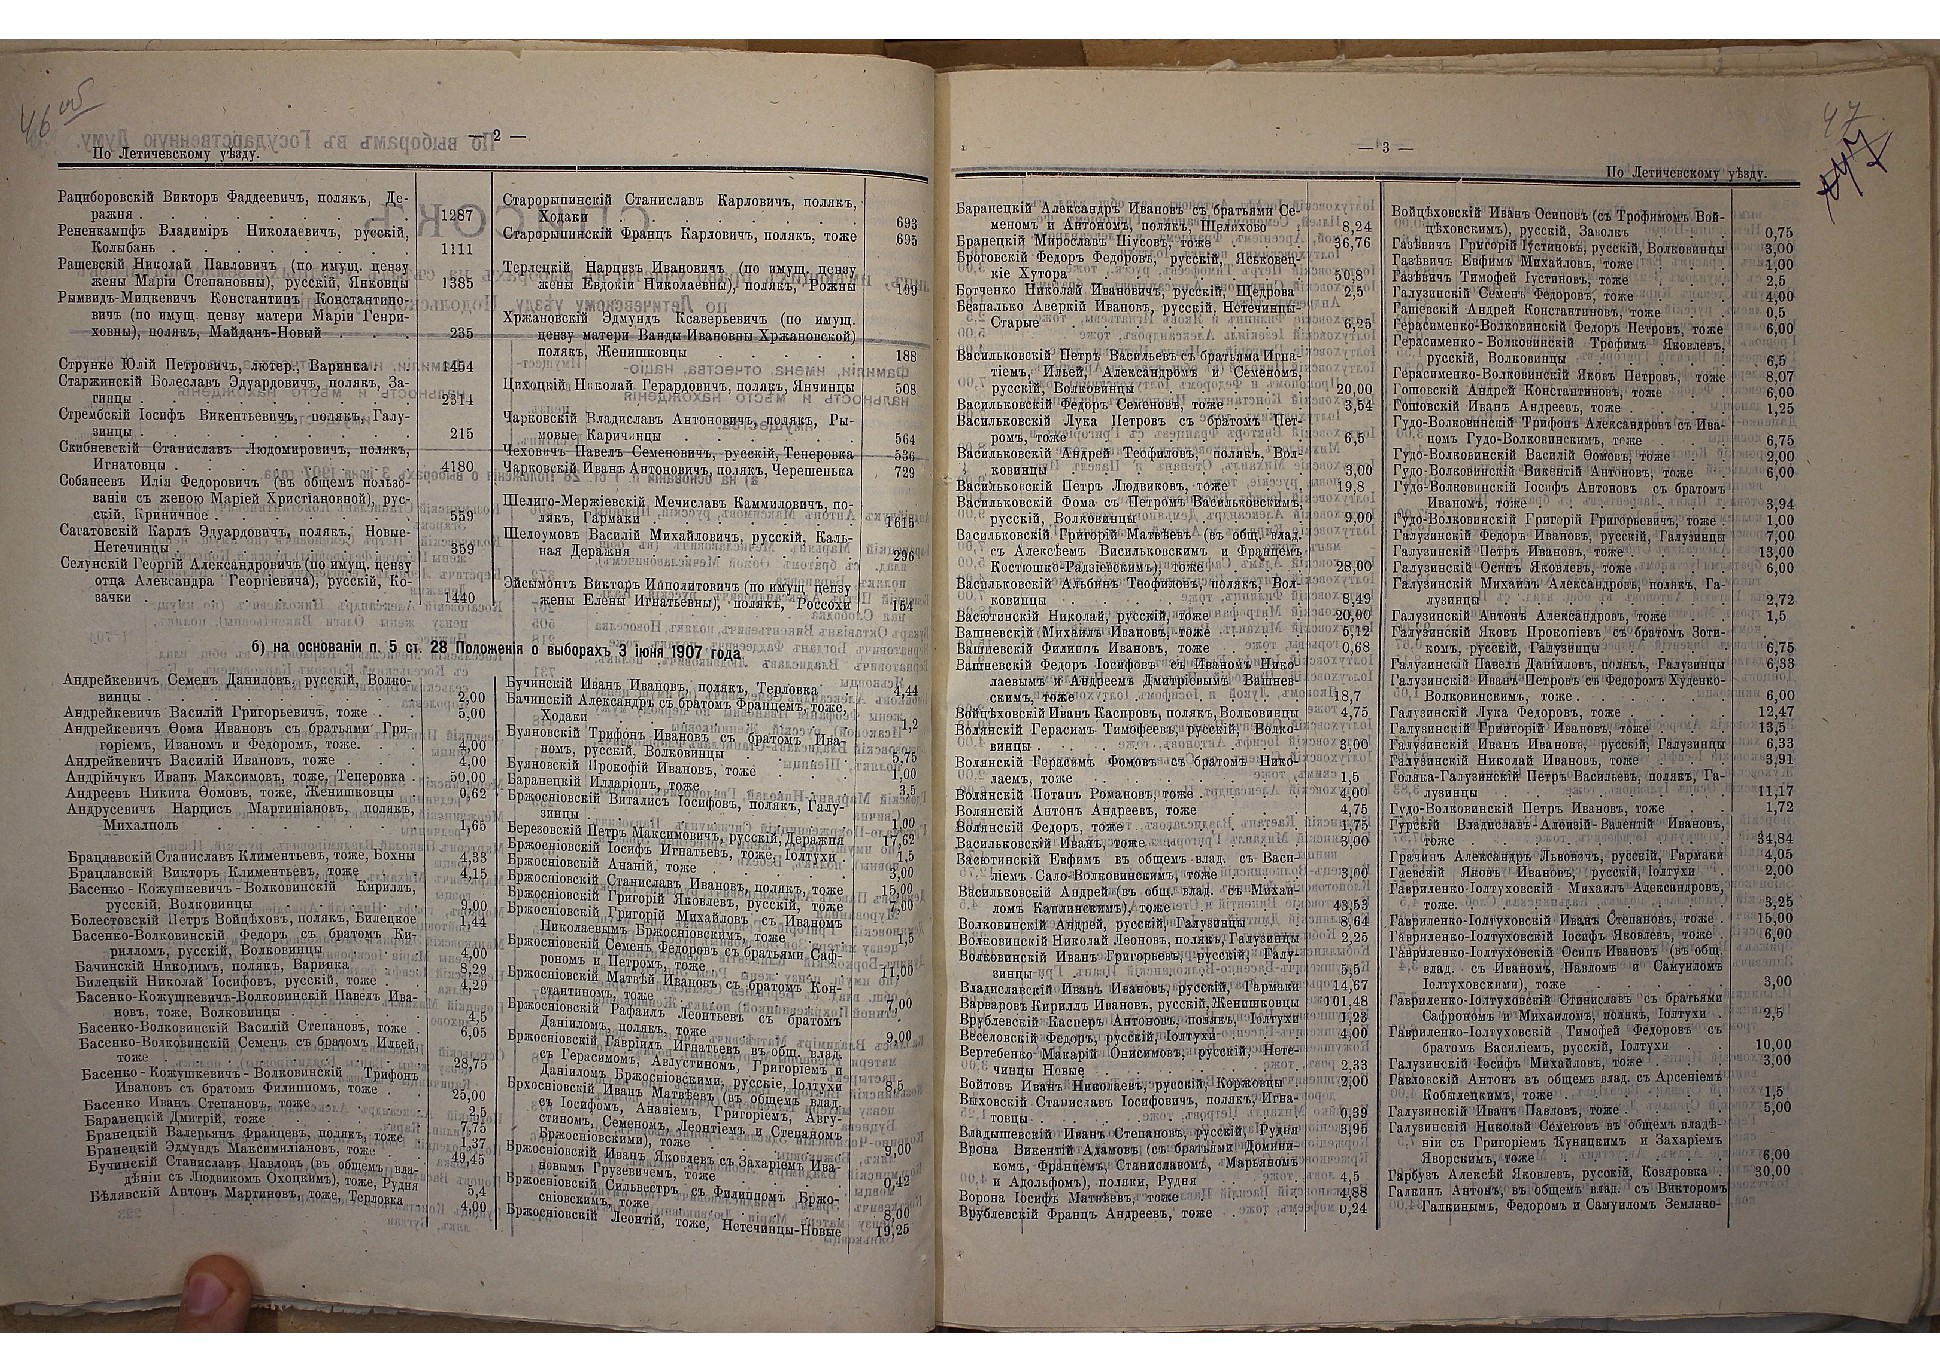 46 об
— 2 —
По Летичевскому уѣзду.
Рациборовскій Викторъ Фаддеевичъ, полякъ, Де-
ражня . 1287
Рененкампфъ Владиміръ Николаевичъ, русскій,
Колыбань . 1111
Рашевскій Николай Павловичъ (по имущ. цензу
жены Маріи Степановны), русскій, Яновцы 1385
Рымвидъ-Мицкевичъ Константинъ Константино-
вичъ (по имущ. цензу матери Маріи Генри-
ховны), полякъ, Майданъ-Новый . 235
Струнке Юлій Петровичъ, лютер., Варинка . 1454
Старжинскій Болеславъ Эдуардовичъ, полякъ, За-
гинцы . 2514
Стрембскій Іосифъ Викентьевичъ, полякъ, Галу-
зинцы . 215
Скибневскій Станиславъ Людомировичъ, полякъ,
Игнатовцы . 4180
Собанеевъ Илія Федоровичъ (въ общемъ пользо-
ваніи съ женою Маріей Христіановной), рус-
скій, Криничное . 559
Сагатовскій Карлъ Эдуардовичъ, полякъ, Новые-
Нетечинцы . 359
Селунскій Георгій Александровичъ (по имущ. цензу
отца Александра Георгіевича), русскій, Ко-
зачки . 1440
Старорыпинскій Станиславъ Карловичъ, полякъ,
Ходаки . 693
Старорыпинскій Францъ Карловичъ, полякъ, тоже 695
Терлецкій Нарцизъ Ивановичъ (по имущ. цензу
жены Евдокіи Николаевны), полякъ, Рожны
Хржановскій Эдмундъ Ксаверьевичъ (по имущ.
цензу матери Ванды Ивановны Хржановской)
полякъ, Женишковцы . 188
Цихоцкій Николай Герардовичъ, полякъ, Янчинцы 508
Чарковскій Владиславъ Антоновичъ, полякъ, Ры-
мовые Каричинцы . 564
Чеховичъ Павелъ Семеновичъ, русскій, Теперовка 536
Чарковскій Иванъ Антоновичъ, полякъ, Черешенька 729
Шелиго-Мержіевскій Мечиславъ Каммиловичъ, по-
лякъ, Гармаки . 1615
Шелоумовъ Василій Михайловичъ, русскій, Каль-
ная Деражня . 296
Эйсымонтъ Викторъ Ипполитовичъ (по имущ. цензу
жены Елены Игнатьевны), полякъ, Россохи 154
б) на основаніи п. 5 ст. 28 Положенія о выборахъ 3 іюня 1907 года
Андрейкевичъ Семенъ Даниловъ, русскій, Волко-
винцы . 2,00
Андрейкевичъ Василій Григорьевичъ, тоже . 5,00
Андрейкевичъ Ѳома Ивановъ съ братьями Гри-
горіемъ, Иваномъ и Федоромъ, тоже. 4,00
Андрейкевичъ Василій Ивановъ, тоже . 4,00
Андрійчукъ Иванъ Максимовъ, тоже, Теперовка . 50,00
Андреевъ Никита Ѳомовъ, тоже, Женишковцы 0,62
Андрусевичъ Нарцисъ Мартиніановъ, полякъ,
Михалполь . 1,65
Брацлавскій Станиславъ Климентьевъ, тоже, Бохны 4,33
Брацлавскій Викторъ Климентьевъ, тоже . 4,15
Басенко-Кожушкевичъ-Волковинскій Кириллъ,
русскій, Волковинцы . 9,00
Болестовскій Петръ Войцѣховъ, полякъ, Билецкое 1,44
Басенко-Волковинскій Федоръ съ братомъ Ки-
рилломъ, русскій, Волковинцы . 4,00
Бачинскій Никодимъ, полякъ, Варинка . 8,29
Билецкій Николай Іосифовъ, русскій, тоже . 4,29
Басенко-Кожушкевичъ-Волковинскій Павелъ Ива-
новъ, тоже, Волковинцы . 4,5
Басенко-Волковинскій Василій Степановъ, тоже . 6,05
Басенко-Волковинскій Семенъ съ братомъ Ильей,
тоже . 28,75
Басенко-Кожушкевичъ-Волковинскій Трифонъ
Ивановъ съ братомъ Филиппомъ, тоже . 25,00
Басенко Иванъ Степановъ, тоже . 2,5
Баранецкій Дмитрій, тоже . 7,75
Бранецкій Валерьянъ Францевъ, полякъ, тоже 1,37
Бранецкій Эдмундъ Максимиліановъ, тоже . 49,45
Бучинскій Станиславъ Павловъ (въ общемъ вла-
дѣніи съ Людвикомъ Охоцкимъ), тоже, Рудня 5,4
Бѣлявскій Антонъ Мартиновъ, тоже, Терловка 4,00
Бучинскій Иванъ Ивановъ, полякъ, Терловка . 4,44
Бачинскій Александръ съ братомъ Францемъ, тоже,
Ходаки . 1,2
Буяновскій Трифонъ Ивановъ съ братомъ Ива-
номъ, русскій, Волковинцы . 5,75
Буяновскій Прокофій Ивановъ, тоже . 1,00
Баранецкій Илларіонъ, тоже . 3,5
Бржосніовскій Виталисъ Іосифовъ, полякъ, Галу-
зинцы . 1,00
Березовскій Петръ Максимовичъ, русскій, Деражня 17,62
Бржосніовскій Іосифъ Игнатьевъ, тоже, Іолтухи . 1,5
Бржосніовскій Ананій, тоже . 3,00
Бржосніовскій Станиславъ Ивановъ, полякъ, тоже 15,00
Бржосніовскій Григорій Яковлевъ, русскій, тоже
Бржосніовскій Григорій Михайловъ съ Иваномъ
Николаевымъ Бржосніовскимъ, тоже . 1,5
Бржосніовскій Семенъ Федоровъ съ братьями Саф-
рономъ и Петромъ, тоже . 11,00
Бржосніовскій Матвѣй Ивановъ съ братомъ Кон-
стантиномъ, тоже . 7,00
Бржосніовскій Рафаилъ Леонтьевъ съ братомъ
Даніиломъ, полякъ, тоже . 9,00
Бржосніовскій Гавріилъ Игнатьевъ въ общ. влад.
съ Герасимомъ, Августиномъ, Григоріемъ и
Даніиломъ Бржосніовскими, русскіе, Іолтухи 8,5
Брхосніовскій Иванъ Матвѣевъ (въ общемъ влад.
съ Іосифомъ, Ананіемъ, Григоріемъ, Авгу-
стиномъ, Семеномъ, Леонтіемъ и Степаномъ
Бржосніовскими), тоже . 9,00
Бржосніовскій Иванъ Яковлевъ съ Захаріемъ Ива-
новымъ Грузевичемъ, тоже . 0,42
Бржосніовскій Сильвестръ съ Филиппомъ Бржо-
сніовскимъ, тоже . 8,00
Бржосніовскій Леонтій, тоже, Нетечинцы-Новые 19,25
47
47
— 3 —
По Летичевскому уѣзду.
Баранецкій Александръ Ивановъ съ братьями Се-
меномъ и Антономъ, полякъ, Шеляхово . 8,24
Бранецкій Мирославъ Піусовъ, тоже . 36,76
Броговскій Федоръ Федоровъ, русскій, Яськовец-
кіе Хутора . 50,8
Ботченко Николай Ивановичъ, русскій, Щедрова 2,5
Безпалько Аверкій Ивановъ, русскій, Нетечинцы-
Старые . 6,25
Васильковскій Петръ Васильевъ съ братьями Игна-
тіемъ, Ильей, Александромъ и Семеномъ,
русскій, Волковинцы . 20,00
Васильковскій Федоръ Семеновъ, тоже . 3,54
Васильковскій Лука Петровъ съ братомъ Пет-
ромъ, тоже . 6,5
Васильковскій Андрей Теофиловъ, полякъ, Вол-
ковинцы . 3,00
Васильковскій Петръ Людвиковъ, тоже . 19.8
Васильковскій Фома съ Петромъ Васильковскимъ,
русскій, Волковинцы . 9,00
Васильковскій Григорій Матвѣевъ (въ общ. влад.
съ Алексѣемъ Висильковскимъ и Францемъ
Костюшко-Радзіевскимъ), тоже . 28,00
Васильковскій Альбинъ Теофиловъ, полякъ, Вол-
ковинцы . 8,49
Васютинскій Николай, русскій, тоже . 20,00
Вашневскій Михаилъ Ивановъ, тоже . 5,12
Вашневскій Филиппъ Ивановъ, тоже . 0,68
Вашневскій Федоръ Іосифовъ съ Иваномъ Нико-
лаевымъ и Андреемъ Дмитріевымъ Вашнев-
скимъ, тоже . 18,7
Войцѣховскій Иванъ Каспровъ, полякъ, Волковинцы 4,75
Волянскій Герасимъ Тимофеевъ, русскій, Волко-
винцы . 3,00
Волянскій Герасимъ Фомовъ съ братомъ Нико-
лаемъ, тоже . 1,5
Волянскій Потапъ Романовъ, тоже . 4,00
Волянскій Антонъ Андреевъ, тоже . 4,75
Волянскій Федоръ, тоже . 1,75
Васильковскій Иванъ, тоже . 3,00
Васютинскій Евфимъ въ общемъ влад. съ Васи-
ліемъ Сало-Волковинскимъ, тоже . 3,00
Васильковскій Андрей (въ общ. влад. съ Михаи-
ломъ Каплинскимъ), тоже . 43,53
Волковинскій Андрей, русскій, Галузинцы . 8,64
Волковинскій Николай Леоновъ, полякъ, Галузинцы 2,25
Волковинскій Иванъ Григорьевъ, русскій, Галу-
зинцы . 5,5
Владиславскій Иванъ Ивановъ, русскій, Гармаки 14,67
Варваровъ Кириллъ Ивановъ, русскій, Женишковцы 101,48
Врублевскій Касперъ Антоновъ, полякъ, Іолтухи 1,23
Веселовскій Федоръ, русскій, Іолтухи . 4,00
Вертебенко Макарій Онисимовъ, русскій, Нете-
чинцы Новые . 2,33
Войтовъ Иванъ Николаевъ, русскій, Коржовцы . 2,00
Выховскій Станиславъ Іосифовичъ, полякъ, Игна-
товцы . 0,39
Владышевскій Иванъ Степановъ, русскій, Рудня 3,95
Врона Викентій Адамовъ (съ братьями Домини-
комъ, Францемъ, Станиславомъ, Марьяномъ
и Адольфомъ), поляки, Рудня . 4,5
Ворона Іосифъ Матвѣевъ, тоже . 4,88
Врублевскій Францъ Андреевъ, тоже . 0,24
Войцѣховскій Иванъ Осиповъ (съ Трофимомъ Вой-
цѣховскимъ), русскій, Заволкъ . 0,75
Газѣвичъ Григорій Іустиновъ, русскій, Волковинцы 3,00
Газѣвичъ Евфимъ Михайловъ, тоже . 1,00
Газѣвичъ Тимофей Іустиновъ, тоже . 2,5
Галузинскій Семенъ Федоровъ, тоже . 4,00
Гашевскій Андрей Константиновъ, тоже . 0,5
Герасименко-Волковинскій Федоръ Петровъ, тоже 6,00
Герасименко-Волковинскій Трофимъ Яковлевъ,
русскій, Волковинцы . 6,5
Герасименко-Волковинскій Яковъ Петровъ, тоже 8,07
Гошовскій Андрей Константиновъ, тоже . 6,00
Гошовскій Иванъ Андреевъ, тоже . 1,25
Гудо-Волковинскій Трифонъ Александровъ съ Ива-
номъ Гудо-Волковинскимъ, тоже . 6,75
Гудо-Волковинскій Василій Ѳомовъ, тоже 2,00
Гудо-Волковинскій Викентій Антоновъ, тоже 6,00
Гудо-Волковинскій Іосифъ Антоновъ съ братомъ
Иваномъ, тоже . 3,94
Гудо-Волковинскій Григорій Григорьевичъ, тоже 1,00
Галузинскій Федоръ Ивановъ, русскій, Галузинцы 7,00
Галузинскій Петръ Ивановъ, тоже . 13,00
Галузинскій Осипъ Яковлевъ, тоже . 6,00
Галузинскій Михаилъ Александровъ, полякъ, Га-
лузинцы . 2,72
Галузинскій Антонъ Александровъ, тоже . 1,5
Галузинскій Яковъ Прокопіевъ съ братомъ Зоти-
комъ, русскій, Галузинцы . 6,75
Галузинскій Павелъ Даніиловъ, полякъ, Галузинцы 6,33
Галузинскій Иванъ Петровъ съ Федоромъ Худенко-
Волковинскимъ, тоже . 6,00
Галузинскій Лука Федоровъ, тоже . 12,47
Галузинскій Григорій Ивановъ, тоже . 13,5
Галузинскій Иванъ Ивановъ, русскій, Галузинцы 6,33
Галузинскій Николай Ивановъ, тоже . 3,91
Голяка-Галузинскій Петръ Васильевъ, полякъ, Га-
лузинцы . 11,17
Гудо-Волковинскій Петръ Ивановъ, тоже . 1,72
Гурскій Владиславъ-Алоизій-Валентій Ивановъ,
тоже . 34,84
Грачинъ Александръ Львовичъ, русскій, Гармаки 4,05
Гаевскій Яковъ Ивановъ, русскій, Іолтухи . 2,00
Гавриленко-Іолтуховскій Михаилъ Александровъ,
тоже. 3,25
Гавриленко-Іолтуховскій Иванъ Степановъ, тоже . 15,00
Гавриленко-Іолтуховскій Іосифъ Яковлевъ, тоже . 6,00
Гавриленко-Іолтуховскій Осипъ Ивановъ (въ общ.
влад. съ Иваномъ, Павломъ и Самуиломъ
Іолтуховскими), тоже . 3,00
Гавриленко-Іолтуховскій Стиниславъ съ братьями
Сафрономъ и Михаиломъ, полякъ, Іолтухи . 2,5
Гавриленко-Іолтуховскій Тимофей Федоровъ съ
братомъ Василіемъ, русскій, Іолтухи . 10,00
Галузинскій Іосифъ Михайловъ, тоже . 3,00
Гавловскій Антонъ въ общемъ влад. съ Арсеніемъ
Кобылецкимъ, тоже . 1,5
Галузинскій Иванъ Павловъ, тоже . 5,00
Галузинскій Николай Семеновъ въ общемъ владѣ-
ніи съ Григоріемъ Куницкимъ и Захаріемъ
Яворскимъ, тоже . 6,00
Гарбузъ Алексѣй Яковлевъ, русскій, Козяровка . 30,00
Галкинъ Антонъ, въ общемъ влад. съ Викторомъ
Галкинымъ, Федоромъ и Самуиломъ Земляко-